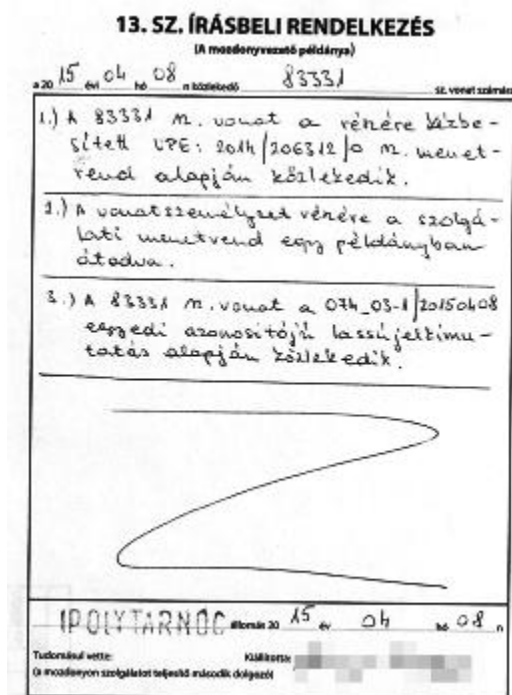 13. SZ. ÍRÁSBELI RENDELKEZÉS
(A mozdonyvezető példánya)
a 20 15 évi 04 hó 08 n közlekedő 83331 sz. vonat számára
1.) A 83331 sz. vonat a részére kézbe-
sített VPE: 2014/206312/0 sz. menet-
rend alapján közlekedik.
2.) A vonatszemélyzet részére a szolgá-
lati menetrend egy példányban
átadva.
3.) A 83331 sz. vonat a 074_03-1/20150408
egyedi azonosítójú lassújeltkimu-
tatás alapján közlekedik.
IPOLYTARNÓC állomás 20 15 év 04 hó 08 n
Tudomásul vette: Kiállította:
(a mozdonyon szolgálatot teljesítő második dolgozó)